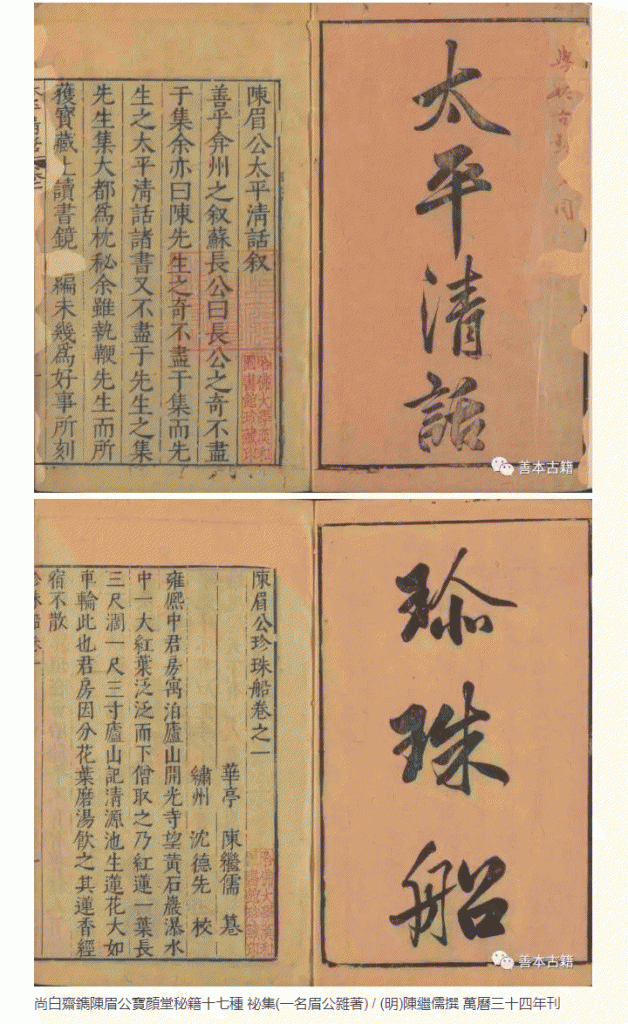 太平清話
陳眉公太平清話叙
善乎弇州之叙蘇長公曰長公之奇不盡
于集余亦曰陳先生之奇不盡于集而先
生之太平清話諸書又不盡于先生之集
先生集大都爲枕秘余雖執鞭先生而所
獲寶藏止讀書鏡 編未幾爲好事所刻
哈佛大學漢和
圖書館珍藏印
善本古籍
珍珠船
陳眉公珍珠船卷之一
華亭 陳繼儒
繡州 沈德先 校
雍熙中君房寓泊廬山開光寺望黃石巖瀑水
中一大紅葉泛泛而下僧取之乃紅蓮一葉長
三尺濶一尺三寸廬山記清源池生蓮花大如
車輪此也君房因分花葉磨湯飲之其蓮香經
宿不散
哈佛大學漢和
圖書館珍藏印
善本古籍
尚白齋鐫陳眉公寶顏堂秘籍十七種 祕集(一名眉公雜著) / (明)陳繼儒撰 萬曆三十四年刊